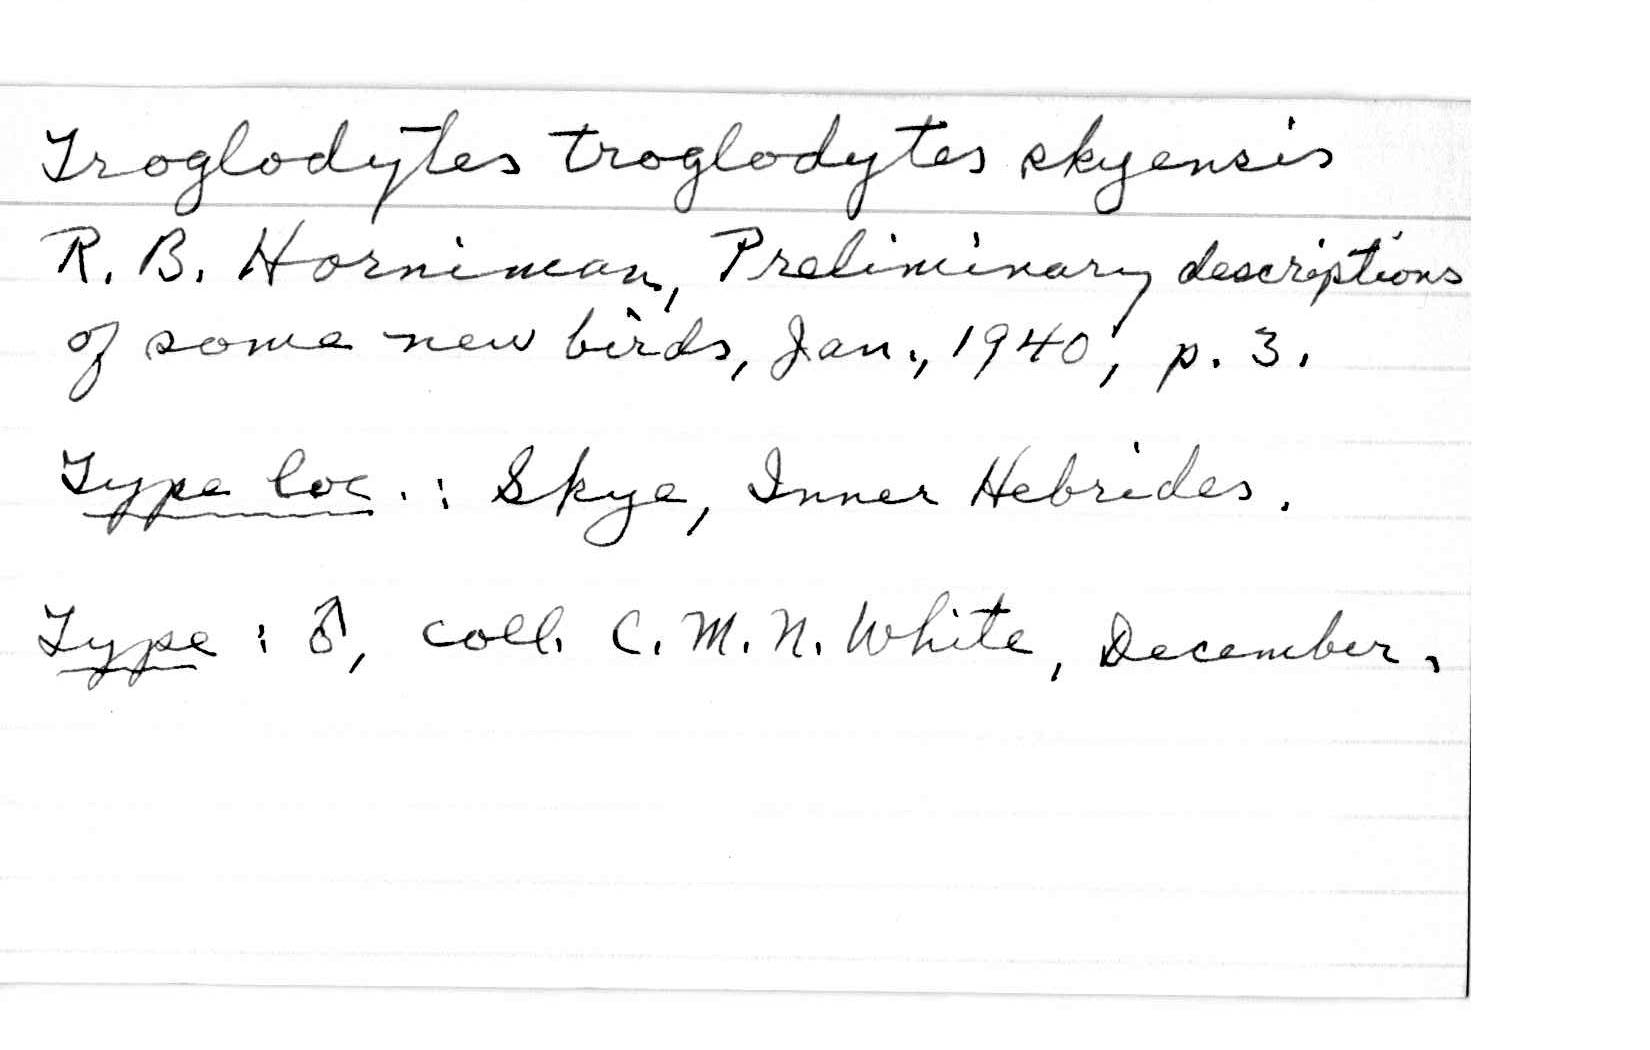 Troglodytes troglodytes skyensis
R. B. Horniman, Preliminary descriptions
of some new birds, Jan., 1940, p. 3.
Type loc.: Skye, Inner Hebrides.
Type: ♂, coll. C. M. N. White, December.